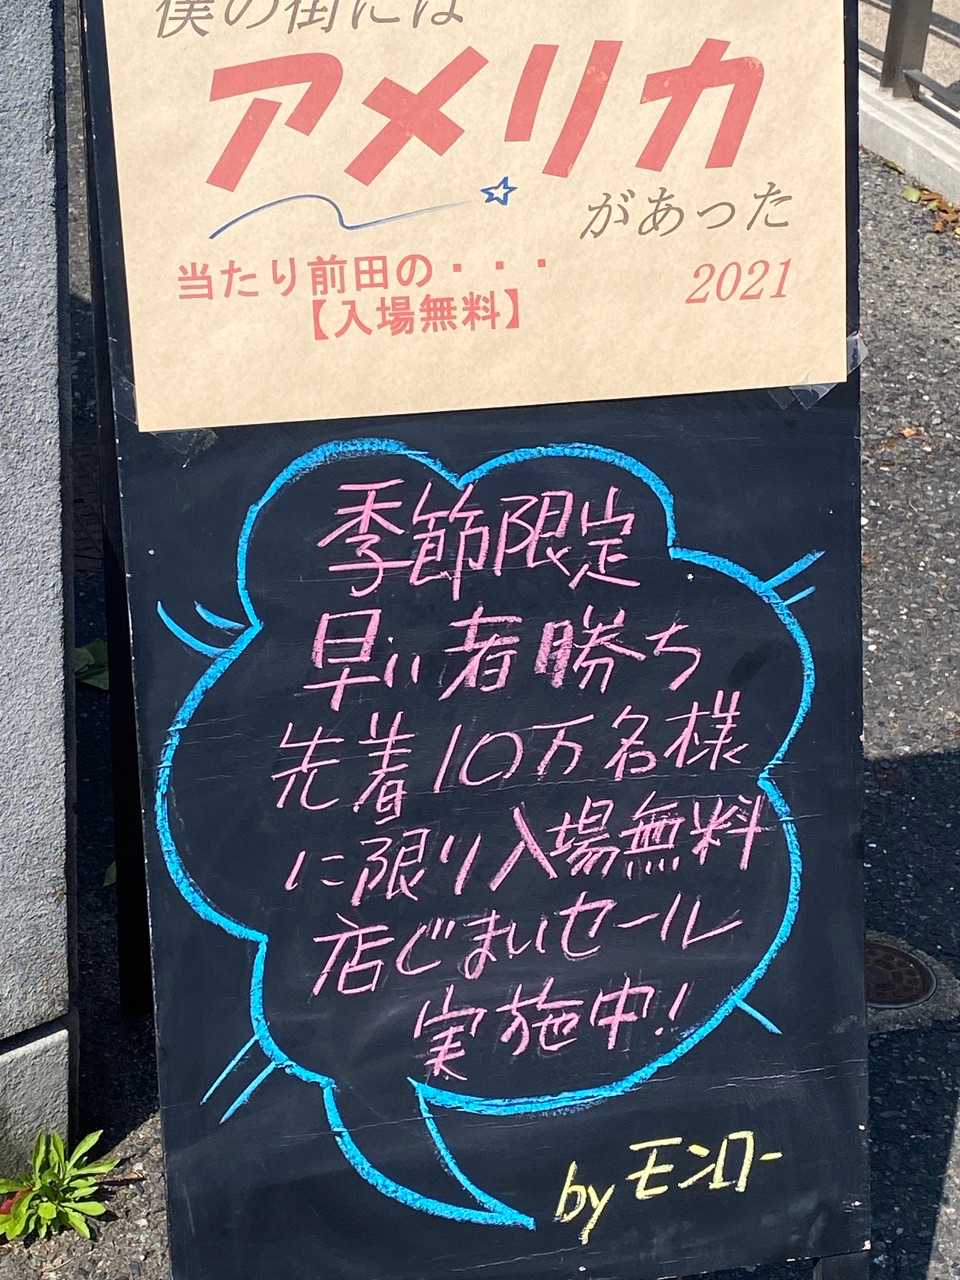 僕の街には
アメリカ
があった
当たり前田の・・・
【入場無料】
2021
季節限定
早い者勝ち
先着10万名様
に限り入場無料
店じまいセール
実施中!
by モンロー